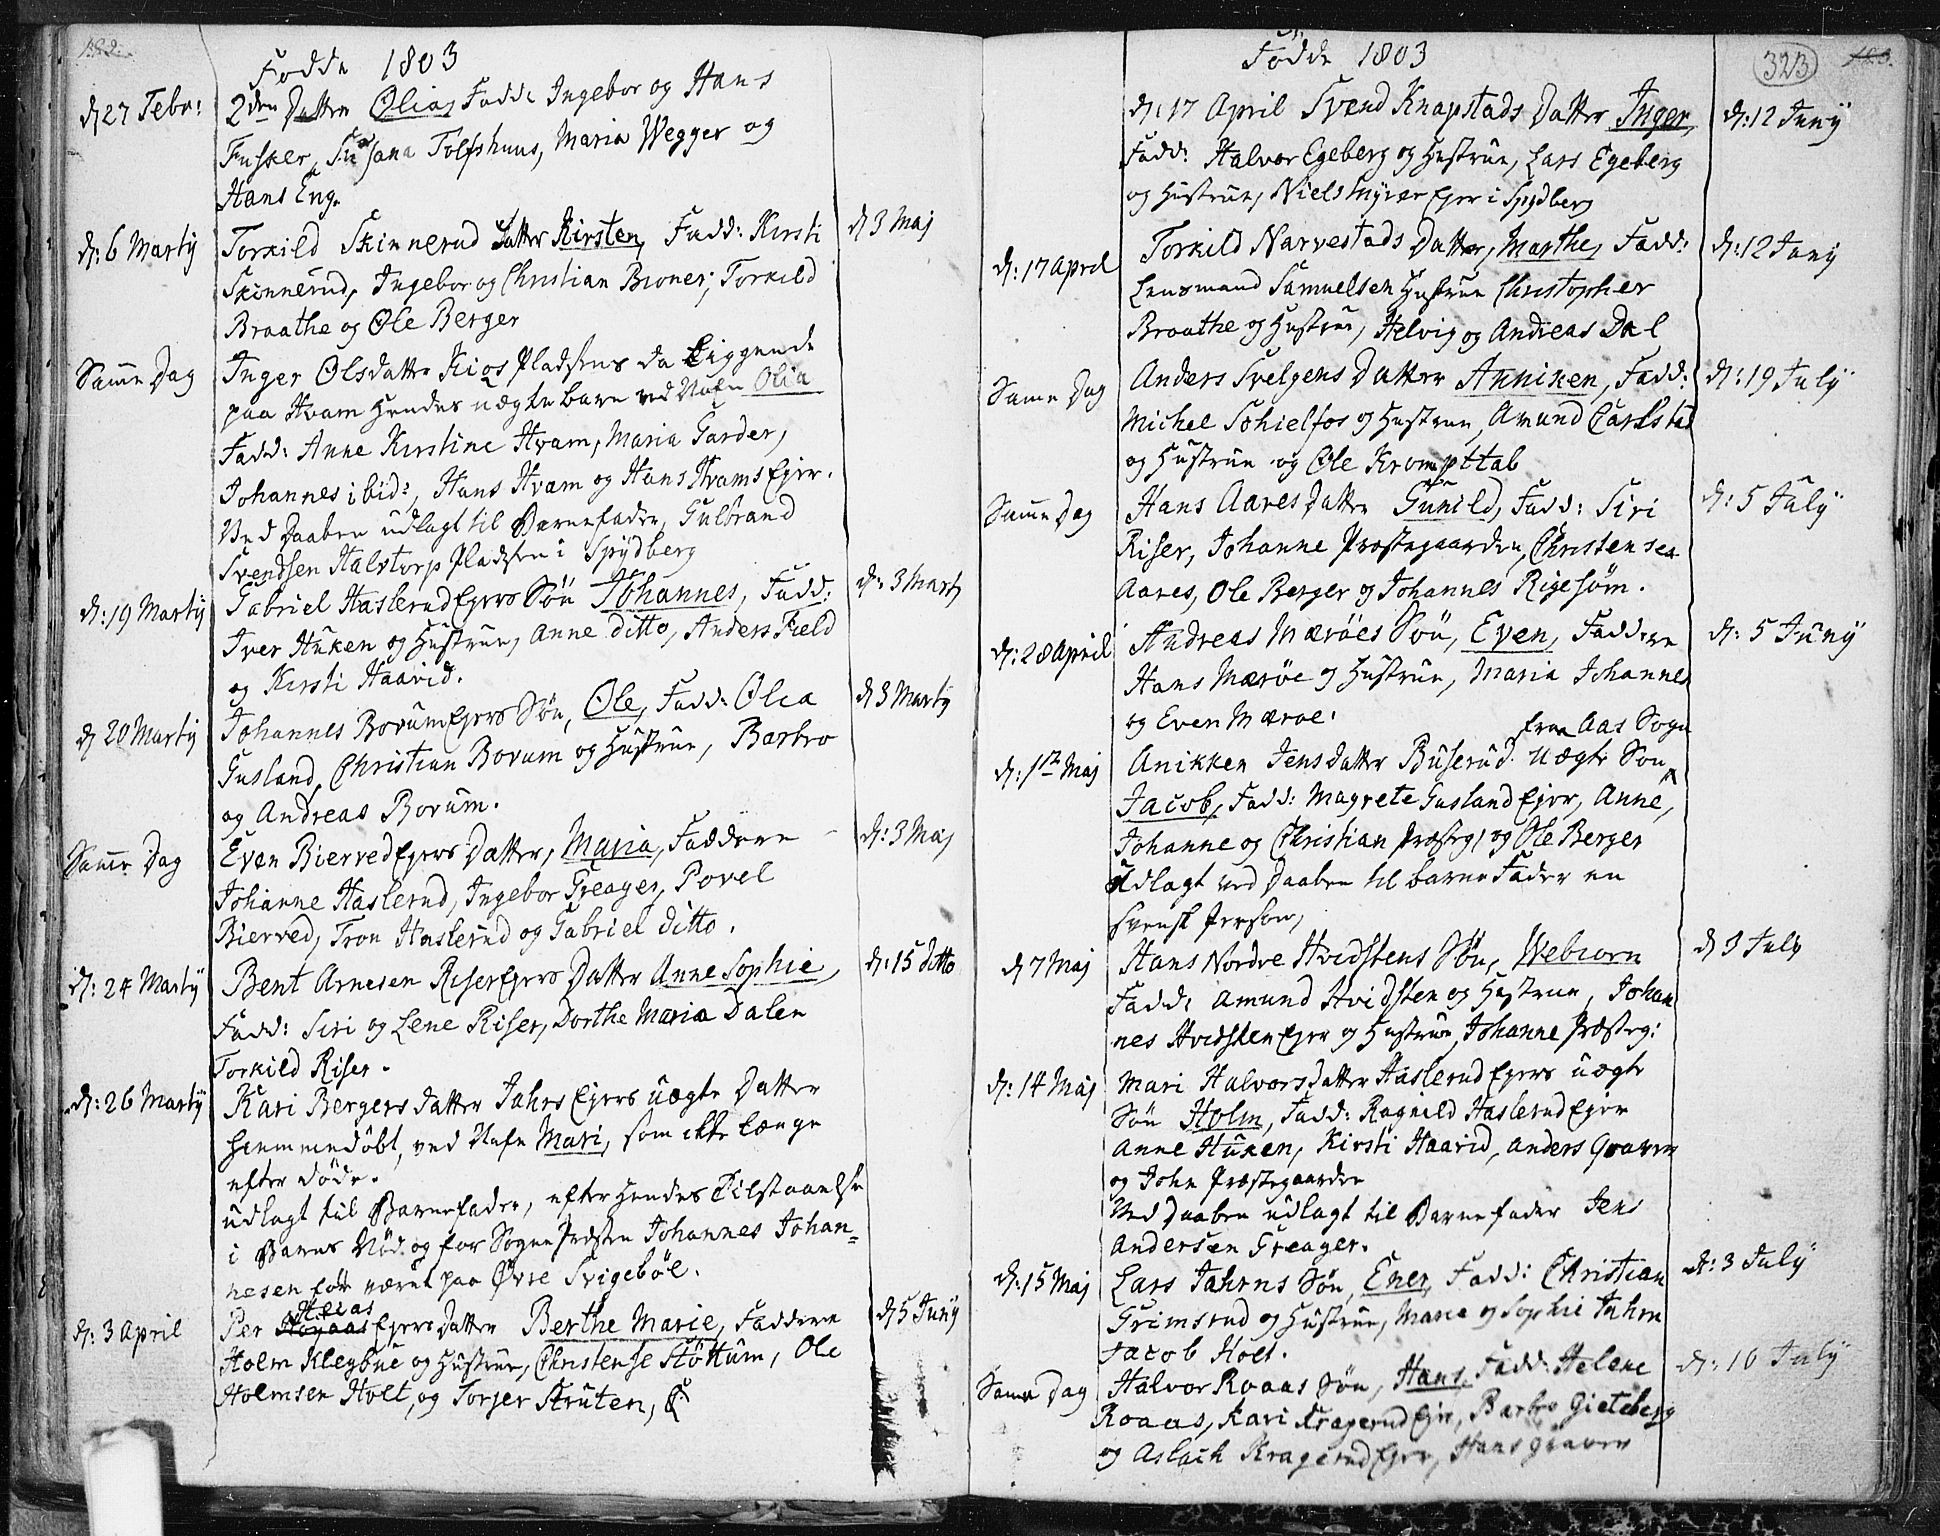 182.
Fødde 1803
d 27 Febr: 2den Datter Olia, Fadd: Ingebor og Hans
Fusker, Susana Tolfshuus, Maria Wegger og
Hans Eng.
d: 6 Martij Torkild Skinnerud Datter Kirsten, Fadd: Kirsti d 3 Maj
Skinnerud, Ingebor og Christian Bioner, Torkild
Braathe og Ole Berger
Samme Dag Inger Olsdatter Kios Pladsens da Liggende
paa Hvam Hendes uægte barn ved Nafn Olia
Fadd: Anne Kirstine Hvam, Maria Garder,
Johannes ibid:, Hans Hvam og Hans Hvams Ejer.
Ved Daaben udlagt til Barnefader, Gulbrand
Svendsen Halstorp Pladsen i Spydberg
d: 19 Martij Gabriel Haslerud Ejers Søn Johannes, Fadd: d: 3 Martj
Iver Huken og Hustrue, Anne ditto, Anders Field
og Kirsti Haavid.
d 20 Martij Johannes Borum Ejers Søn, Ole, Fadd: Olea d 3 Martij
Gusland, Christian Borum og Hustrue, Barbro
og Andreas Borum.
Samme Dag Even Bierved Ejers Datter, Maria, Faddere d: 3 Maj
Johanne Haslerud, Ingebor Greager, Povel
Bierved, Tron Haslerud og Gabriel ditto.
d: 24 Martij Bent Arnesen Riser Ejers Datter Anne Sophie, d: 15 ditto
Fadd: Siri og Lene Riser, Dorthe Maria Dalen
Torkild Riser.
d: 26 Martij Kari Bergersdatter Jahrs Ejers uægte Datter
hiemmedøbt, ved Nafn Mari, som ikke længe
efter døde.
udlagt til Barnefader, efter Hendes Tilstaaelse
i Barns Nød og for Sogne Præsten Johannes Johan=
nesen før været paa Øvre Svigebøl.
Heias
d: 3 April Per Ejers Datter Berthe Marie, Faddere d 5 Junij
Holm Klegbue og Hustrue, Christense Støttum, Ole
Holmsen Holt, og Torger Struten,
Fødde 1803
323
183.
d: 17 April Svend Knapstads Datter Inger, d: 12 Junij
Fadd: Halvor Egeberg og Hustrue, Lars Egeberg
og Hustrue, Niels Myrer Ejer i Spydberg
d: 17 April Torkild Narvestads Datter, Marthe, Fadd: d: 12 Junij
Lensmand Samuelsen Hustrue Christopher
Braathe og Hustrue, Helvig og Andreas Dal
Samme Dag Anders Svelgens Datter Anniken, Fadd: d: 19 July
Michel Sohielfos og Hustrue, Amund Carlstad
og Hustrue og Ole Krompttab
Samme Dag Hans Aares Datter Gunild, Fadd: Siri d: 5 July
Riser, Johanne Præstegaarden, Christensea
Aares, Ole Berger og Johannes Rigesøm.
d: 28 April Andreas Mærøes Søn, Even, Faddere d: 5 Junij
Hans Mærøe og Hustrue, Maria Johannes
og Even Mærøe.
fra Aas Sogn
d: 1ste Maj Anikken Jensdatter Buserud uægte Søn
Jacob, Fadd: Magrete Gusland Ejer, Anne,
Johanne og Christian Præsteg, og Ole Berger
Udlagt ved Daaben til barne Fader en
svensk Person,
d 7 Maj Hans Nordre Hvidstens Søn, Webiorn d 3 July
Fadd: Amund Hvidsten og Hustrue, Johan
nes Hvidsten Ejer og Hustrue, Johanne Præsteg:
d: 14 Maj Mari Halvorsdatter Haslerud Ejers uægte
Søn Holm, Fadd: Ragnild Haslerud Ejer
Anne Huken, Kirsti Haavid, Anders Graaven
og John Præstegaarden
Ved Daaben udlagt til Barnefader Jens
Andersen Greager.
d: 15 Maj Lars Jahrns Søn, Ener, Fadd: Christian d: 3 July
Grimsrud og Hustrue, Maria og Sophie Jahrn
Jacob Hoel.
Samme Dag Halvor Roaas Søn, Hans, Fadd: Helene d: 10 July
Roaas, Kari Kragerud Ejer, Barbro Gieteberg
og Aslach Kragerud Ejer, Hans Graaven